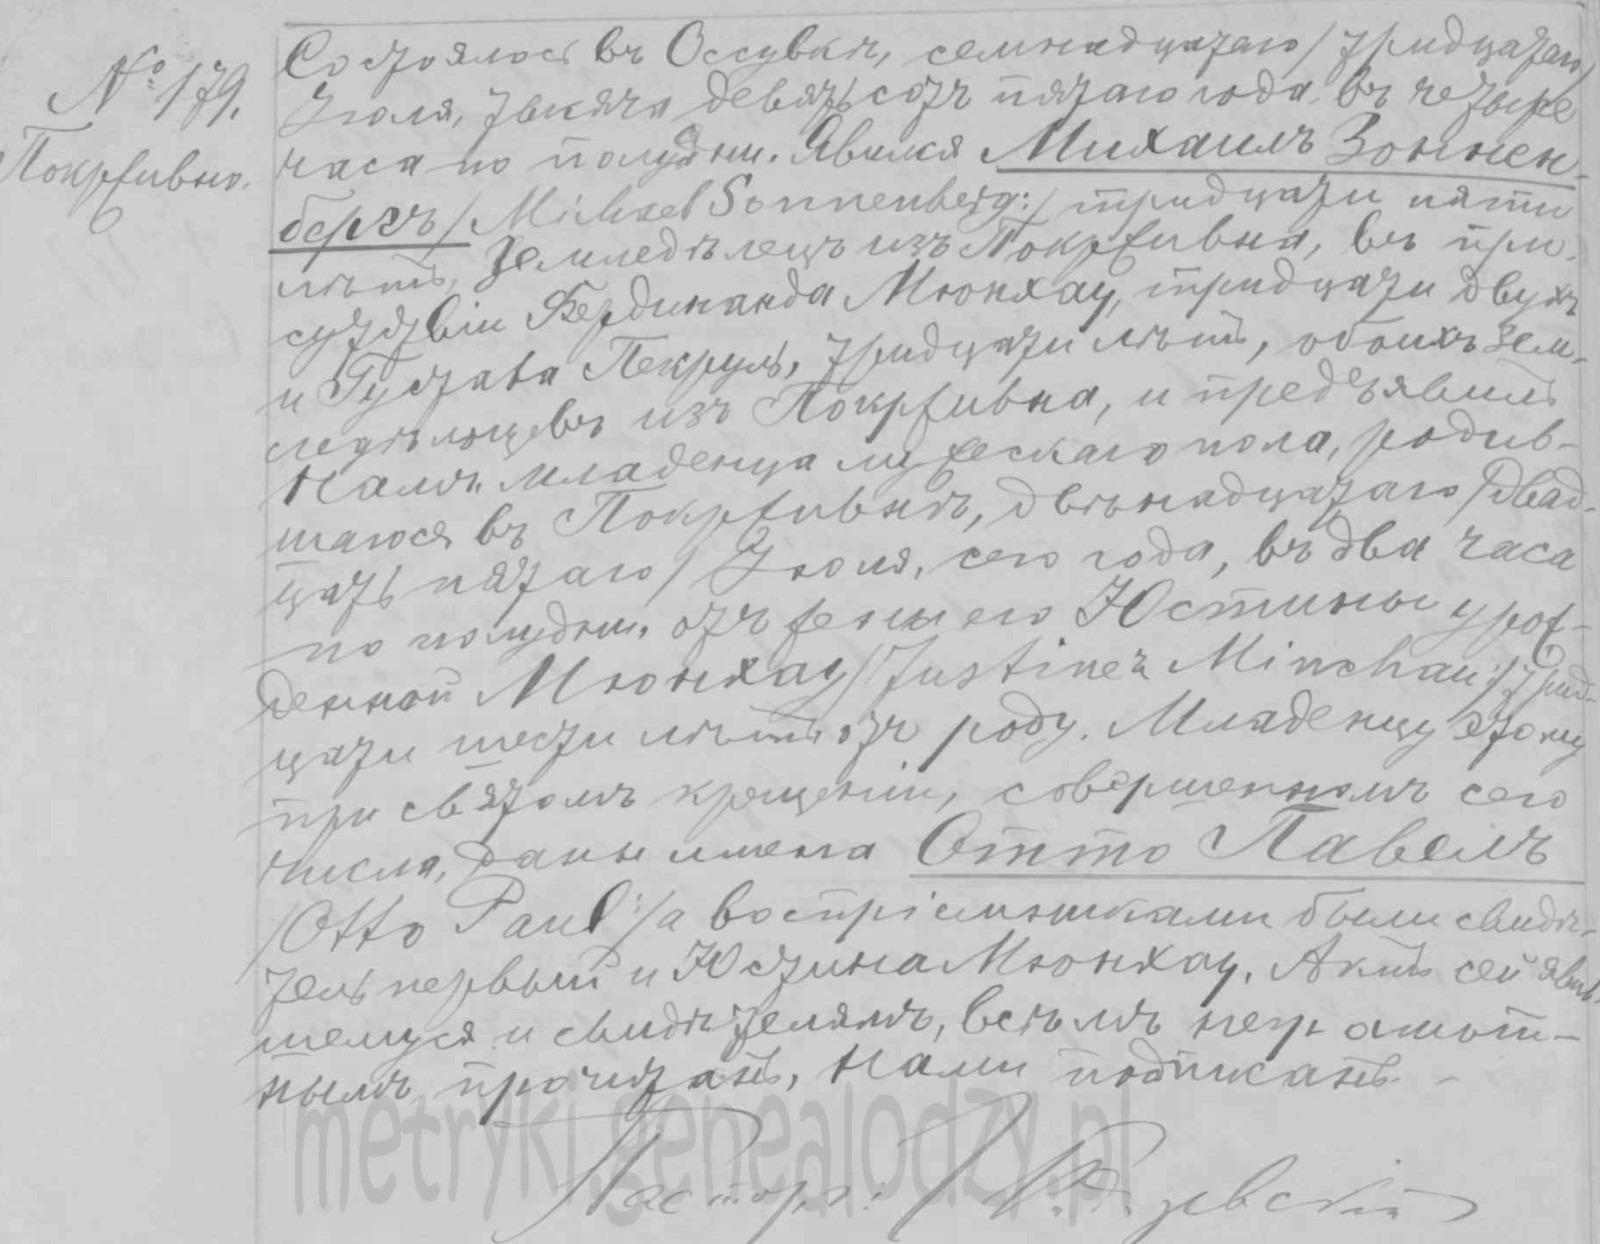 № 179.
Покрживно.
Состоялось въ Оссувкѣ, семнадцатаго /тридцатаго/
Іюля, тысяча девятьсотъ пятаго года, въ четыре
часа по полудни. Явился Михаилъ Зоннен-
бергъ /Michael Sonnenberg:/ тридцати пяти
лѣтъ, земледѣлецъ изъ Покрживна, въ при-
сутствіи Фердинанда Мюнхау, тридцати двухъ
и Густава Пекруль, тридцати лѣтъ, обоихъ зем-
ледѣльцевъ изъ Покрживна, и предъявилъ
намъ младенца мужескаго пола, родив-
шагося въ Покрживнѣ, двѣнадцатаго /двад-
цать пятаго/ Іюля, сего года, въ два часа
по полудни, отъ жены его Юстины урож-
денной Мюнхау /Justine Minchau:/ трид-
цати шести лѣтъ отъ роду. Младенцу этому
при святомъ крещеніи, совершенномъ сего
числа, даны имена Отто Павелъ
/Otto Paul:/ а воспріемниками были свидѣ-
тель первый и Юстина Мюнхау. Актъ сей явив-
шемуся и свидѣтелямъ, всѣмъ неграмот-
нымъ прочитанъ, нами подписанъ. -
Пасторъ:
metryki.genealodzy.pl